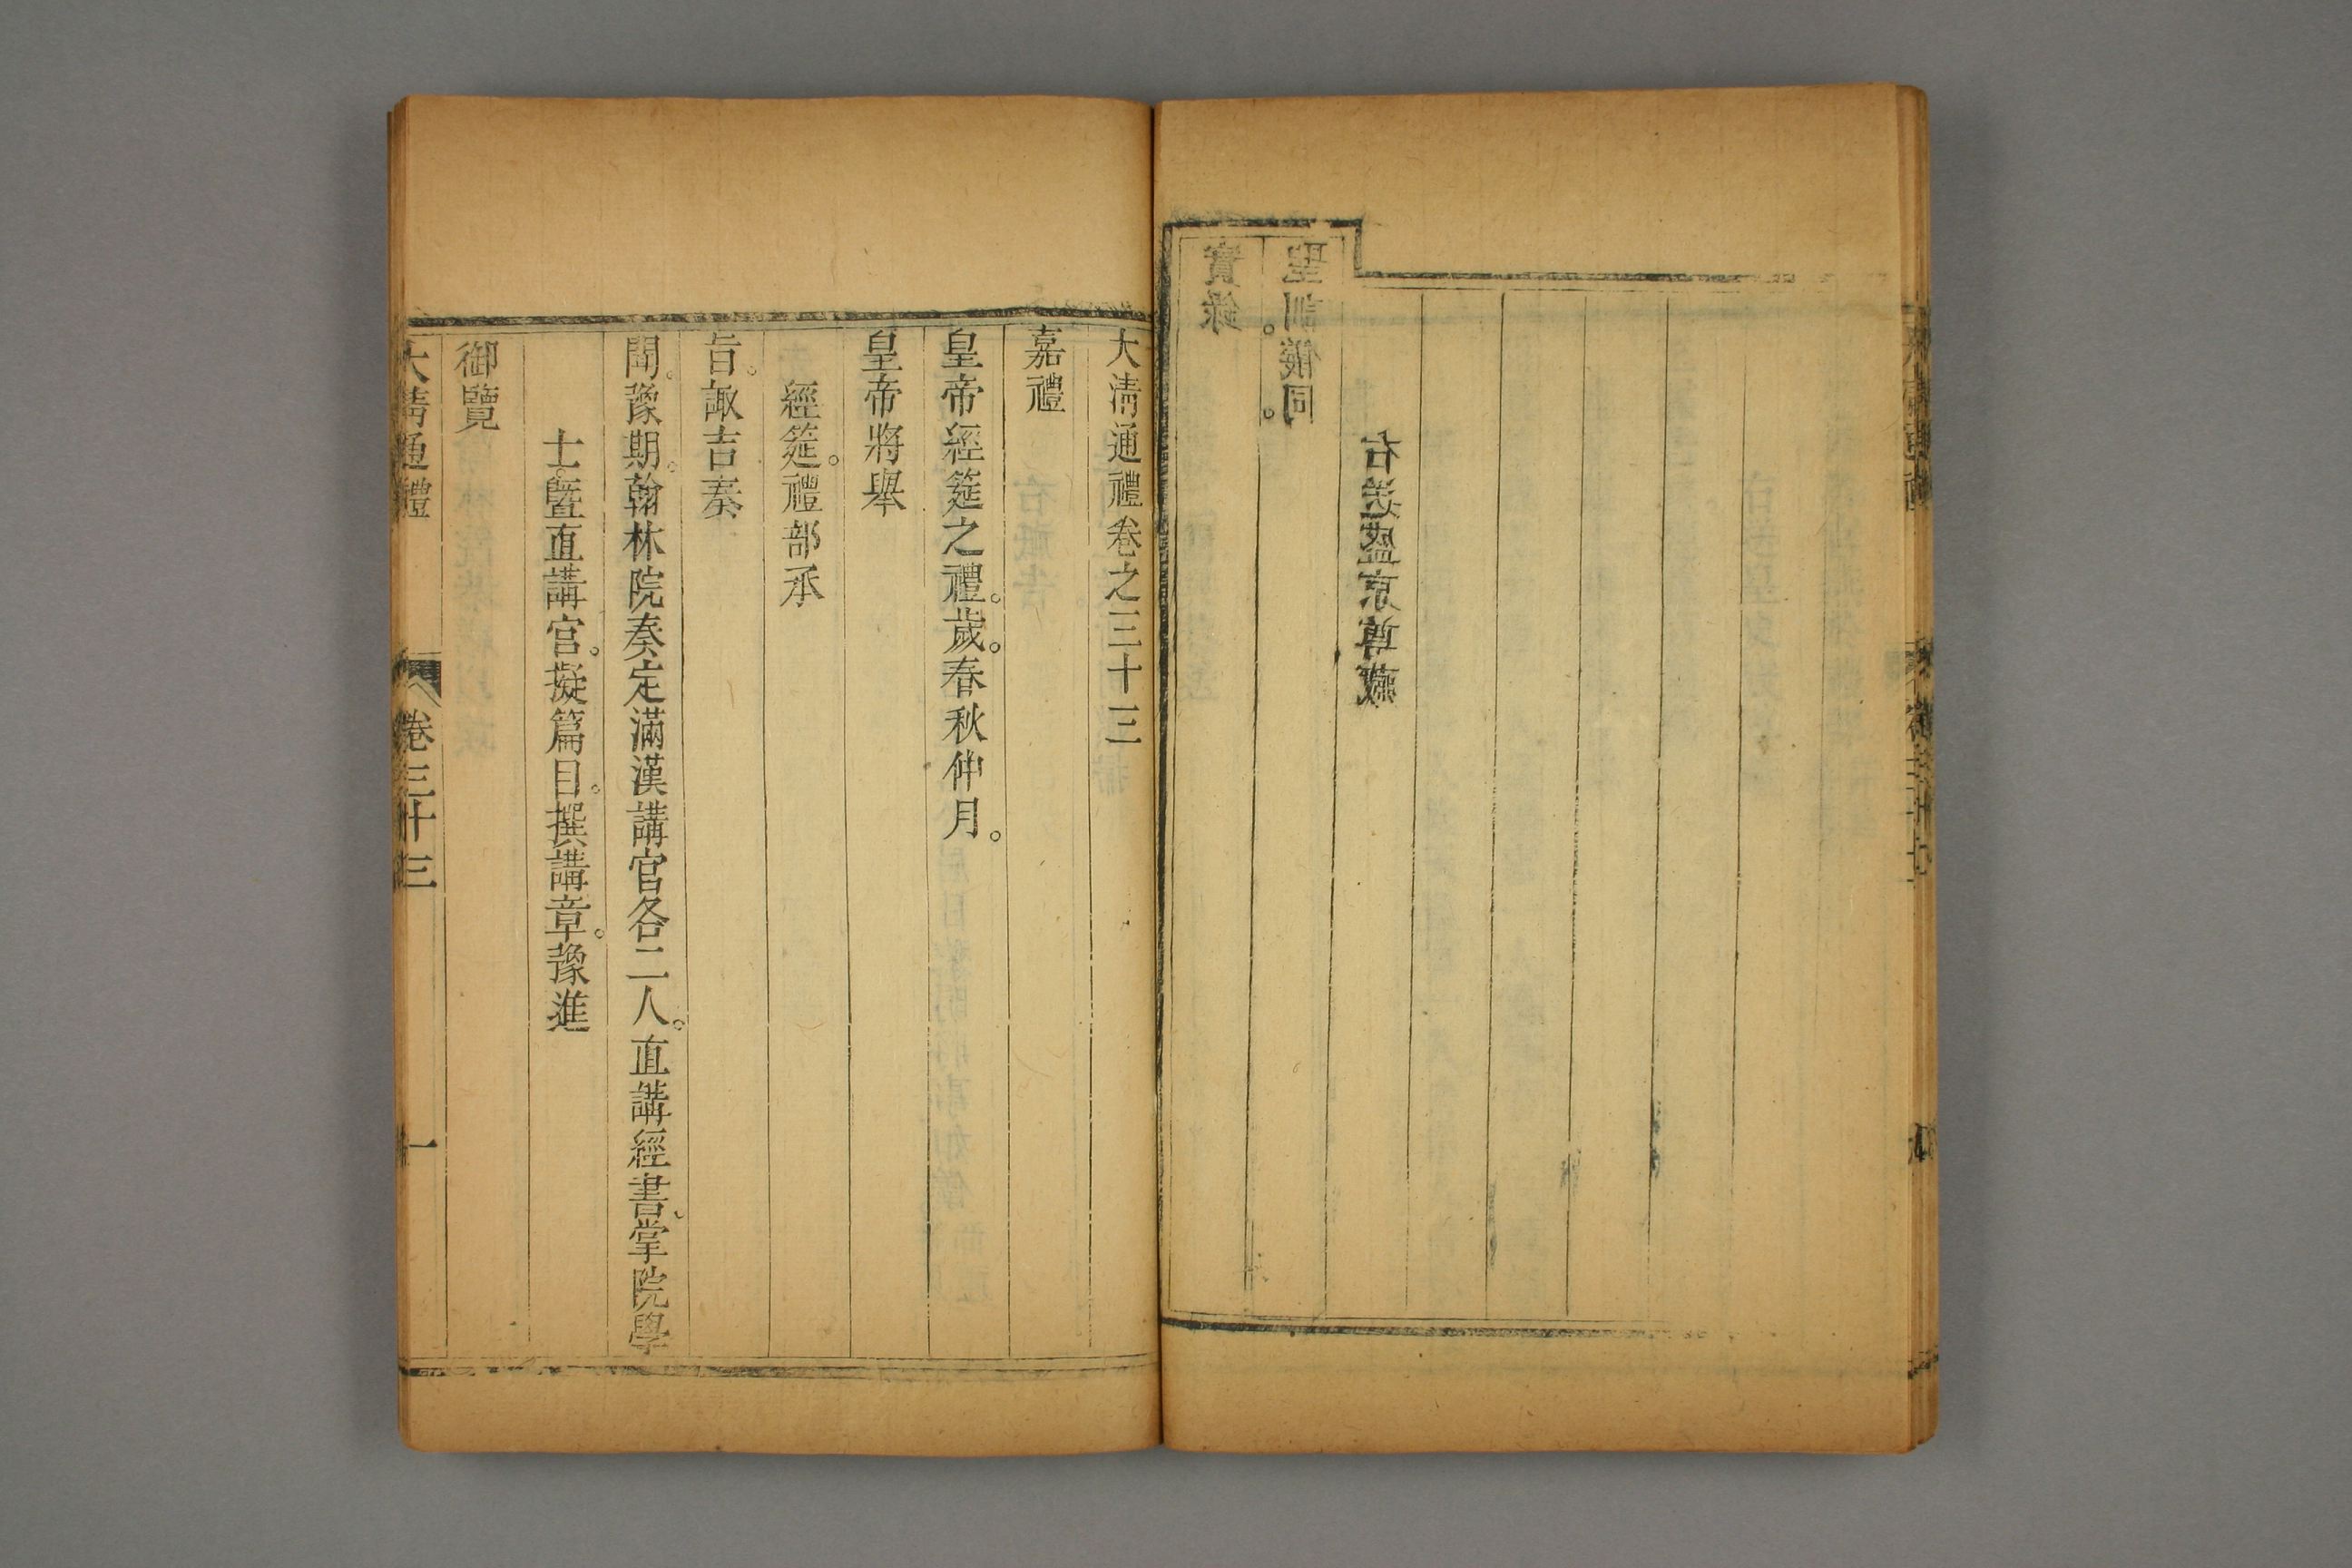 實錄
聖訓。儀同。
右送盛京尊藏
大清通禮卷之三十三
嘉禮
皇帝經筵之禮。歲。春秋仲月。
皇帝將舉
經筵。禮部承
旨。諏吉奏
聞。豫期。翰林院奏定滿漢講官各二人。直講經書、掌院學
士。暨直講官。擬篇目。撰講章。豫進
御覽
大清通禮 卷三十三 一